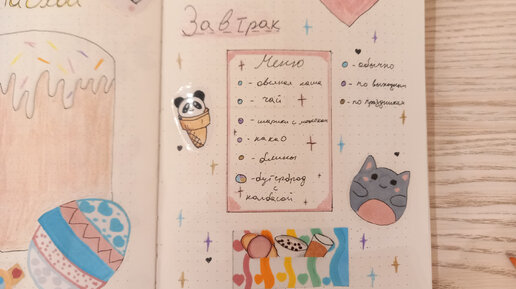 Пасхой
Завтрак
Меню
- овсяная каша
- чай
- шарики с молоком
- какао
- блины
- бутерброд
с
колбасой
- обычно
- по выходным
- по праздникам